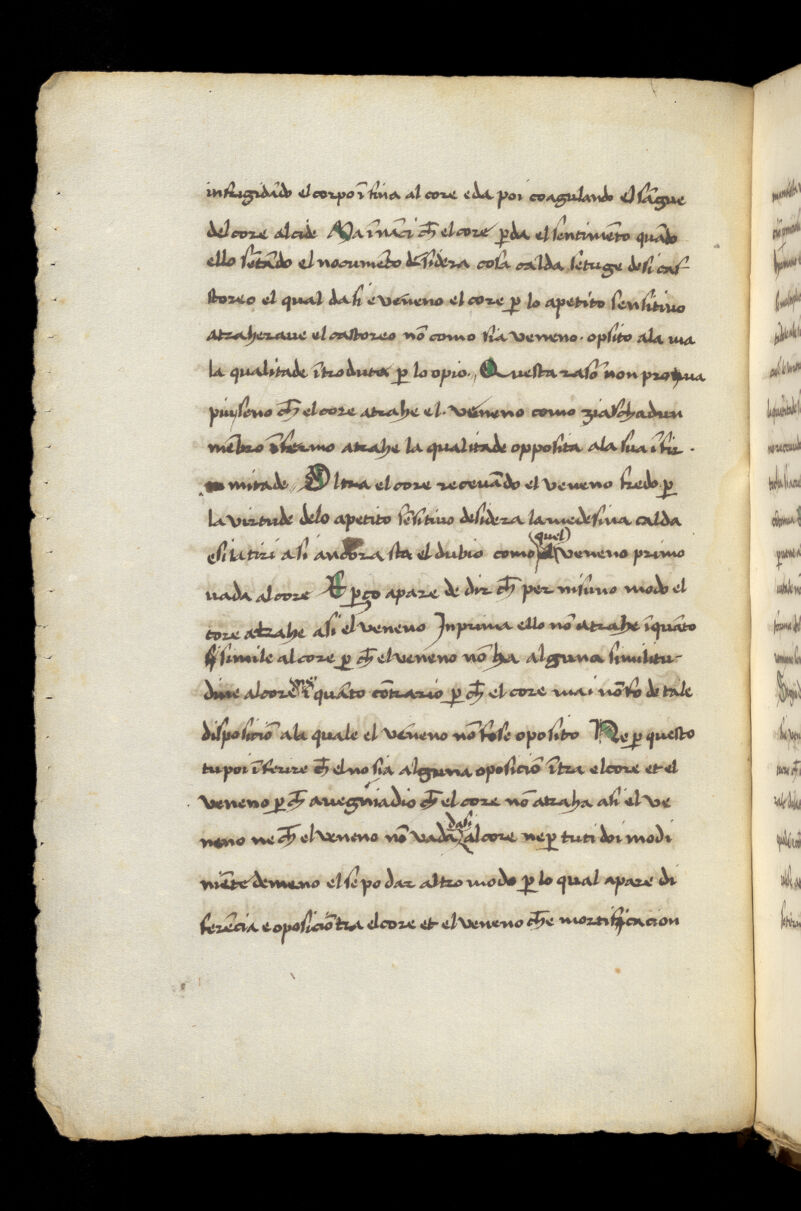 infrigidādo el corpo ī fina al core e da poi coagulando el sāgue
del core alcide Ma īnāci ch̄ el core ꝑda el sentimēto quādo
ello sētādo el nocumēto dēsidera cosa calda se tuge de si cas
storeo el qual da si e veneno el core ꝑ lo apetito sensitiuo
atraherave el castoreo nō como sia veneno · oposito ala ma
la qualitade ītroduta ꝑ lo opio · Questa rasō non prova
piu seno ch̄ el core atrahe el · veneno como ziaschadun
mēbro īfermo atrahe la qualitade opposita ala sua īfir ·
mitade · Oltra el core recevādo el veneno fredo ꝑ
la virtude delo apetito sēsitiuo desidera la medesina calda
e si la tiri a si ancora sta el dubio como quel veneno primo
vada al core E ꝑ ço apare de dir ch̄ per nisuno modo el
core atrahe asi el veneno Inprima ello nō atrahe īquāto
simile al core ꝑ ch̄ el veneno nō ha alguna similitu-
dine al core īquāto cōtrario ꝑ ch̄ el core mai nō fo de tale
dispositiō ala quale el veneno nō fose oposito Ne ꝑ questo
tu poi īferire ch̄ el no sia alguna oposiciō ītra el core et el
veneno ꝑ ch̄ avegnia dio ch̄ el core nō atraha asi el ve
neno ne ch̄ el veneno nō vada dasi al core ne ꝑ tuti doi modi
mēte demeno el se po dar altro modo ꝑ lo qual apare di
ferēcia e oposiciō tra el core et el veneno ch̄e mortificacion